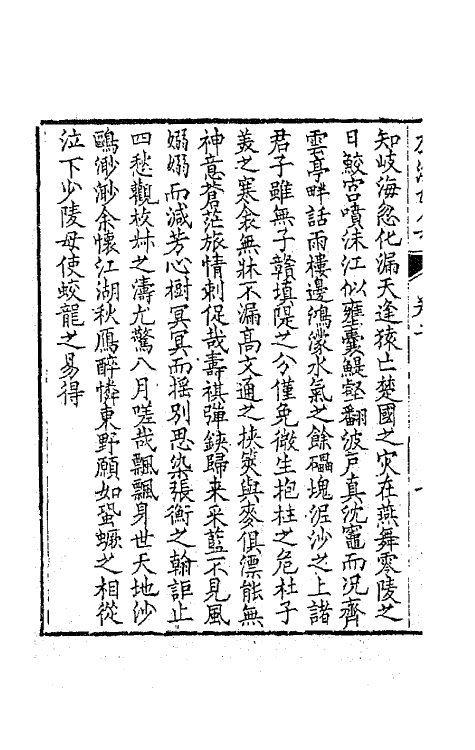 知岐海忽化漏天逢猿亡楚國之灾在燕舞零陵之
日鮫宮噴沫江似壅囊鯷壑翻波戸真沈竈而况齊
雲亭畔話雨樓邊鴻濛水氣之餘礧塊泥沙之上諸
君子雖無子贛填隄之分僅免微生抱柱之危杜子
美之寒衾無牀不漏高文通之挾筴與麥俱漂能無
神意蒼茫旅情刺促哉壽祺彈鋏歸来采藍不見風
嫋嫋而減芳心樹冥冥而揺别思染張衡之翰詎止
四愁觀枚叔之濤尤驚八月嗟哉飄飄身世天地沙
鷗渺渺余懷江湖秋鴈醉憐東野願如蛩蟨之相從
泣下少陵毋使蛟龍之易得